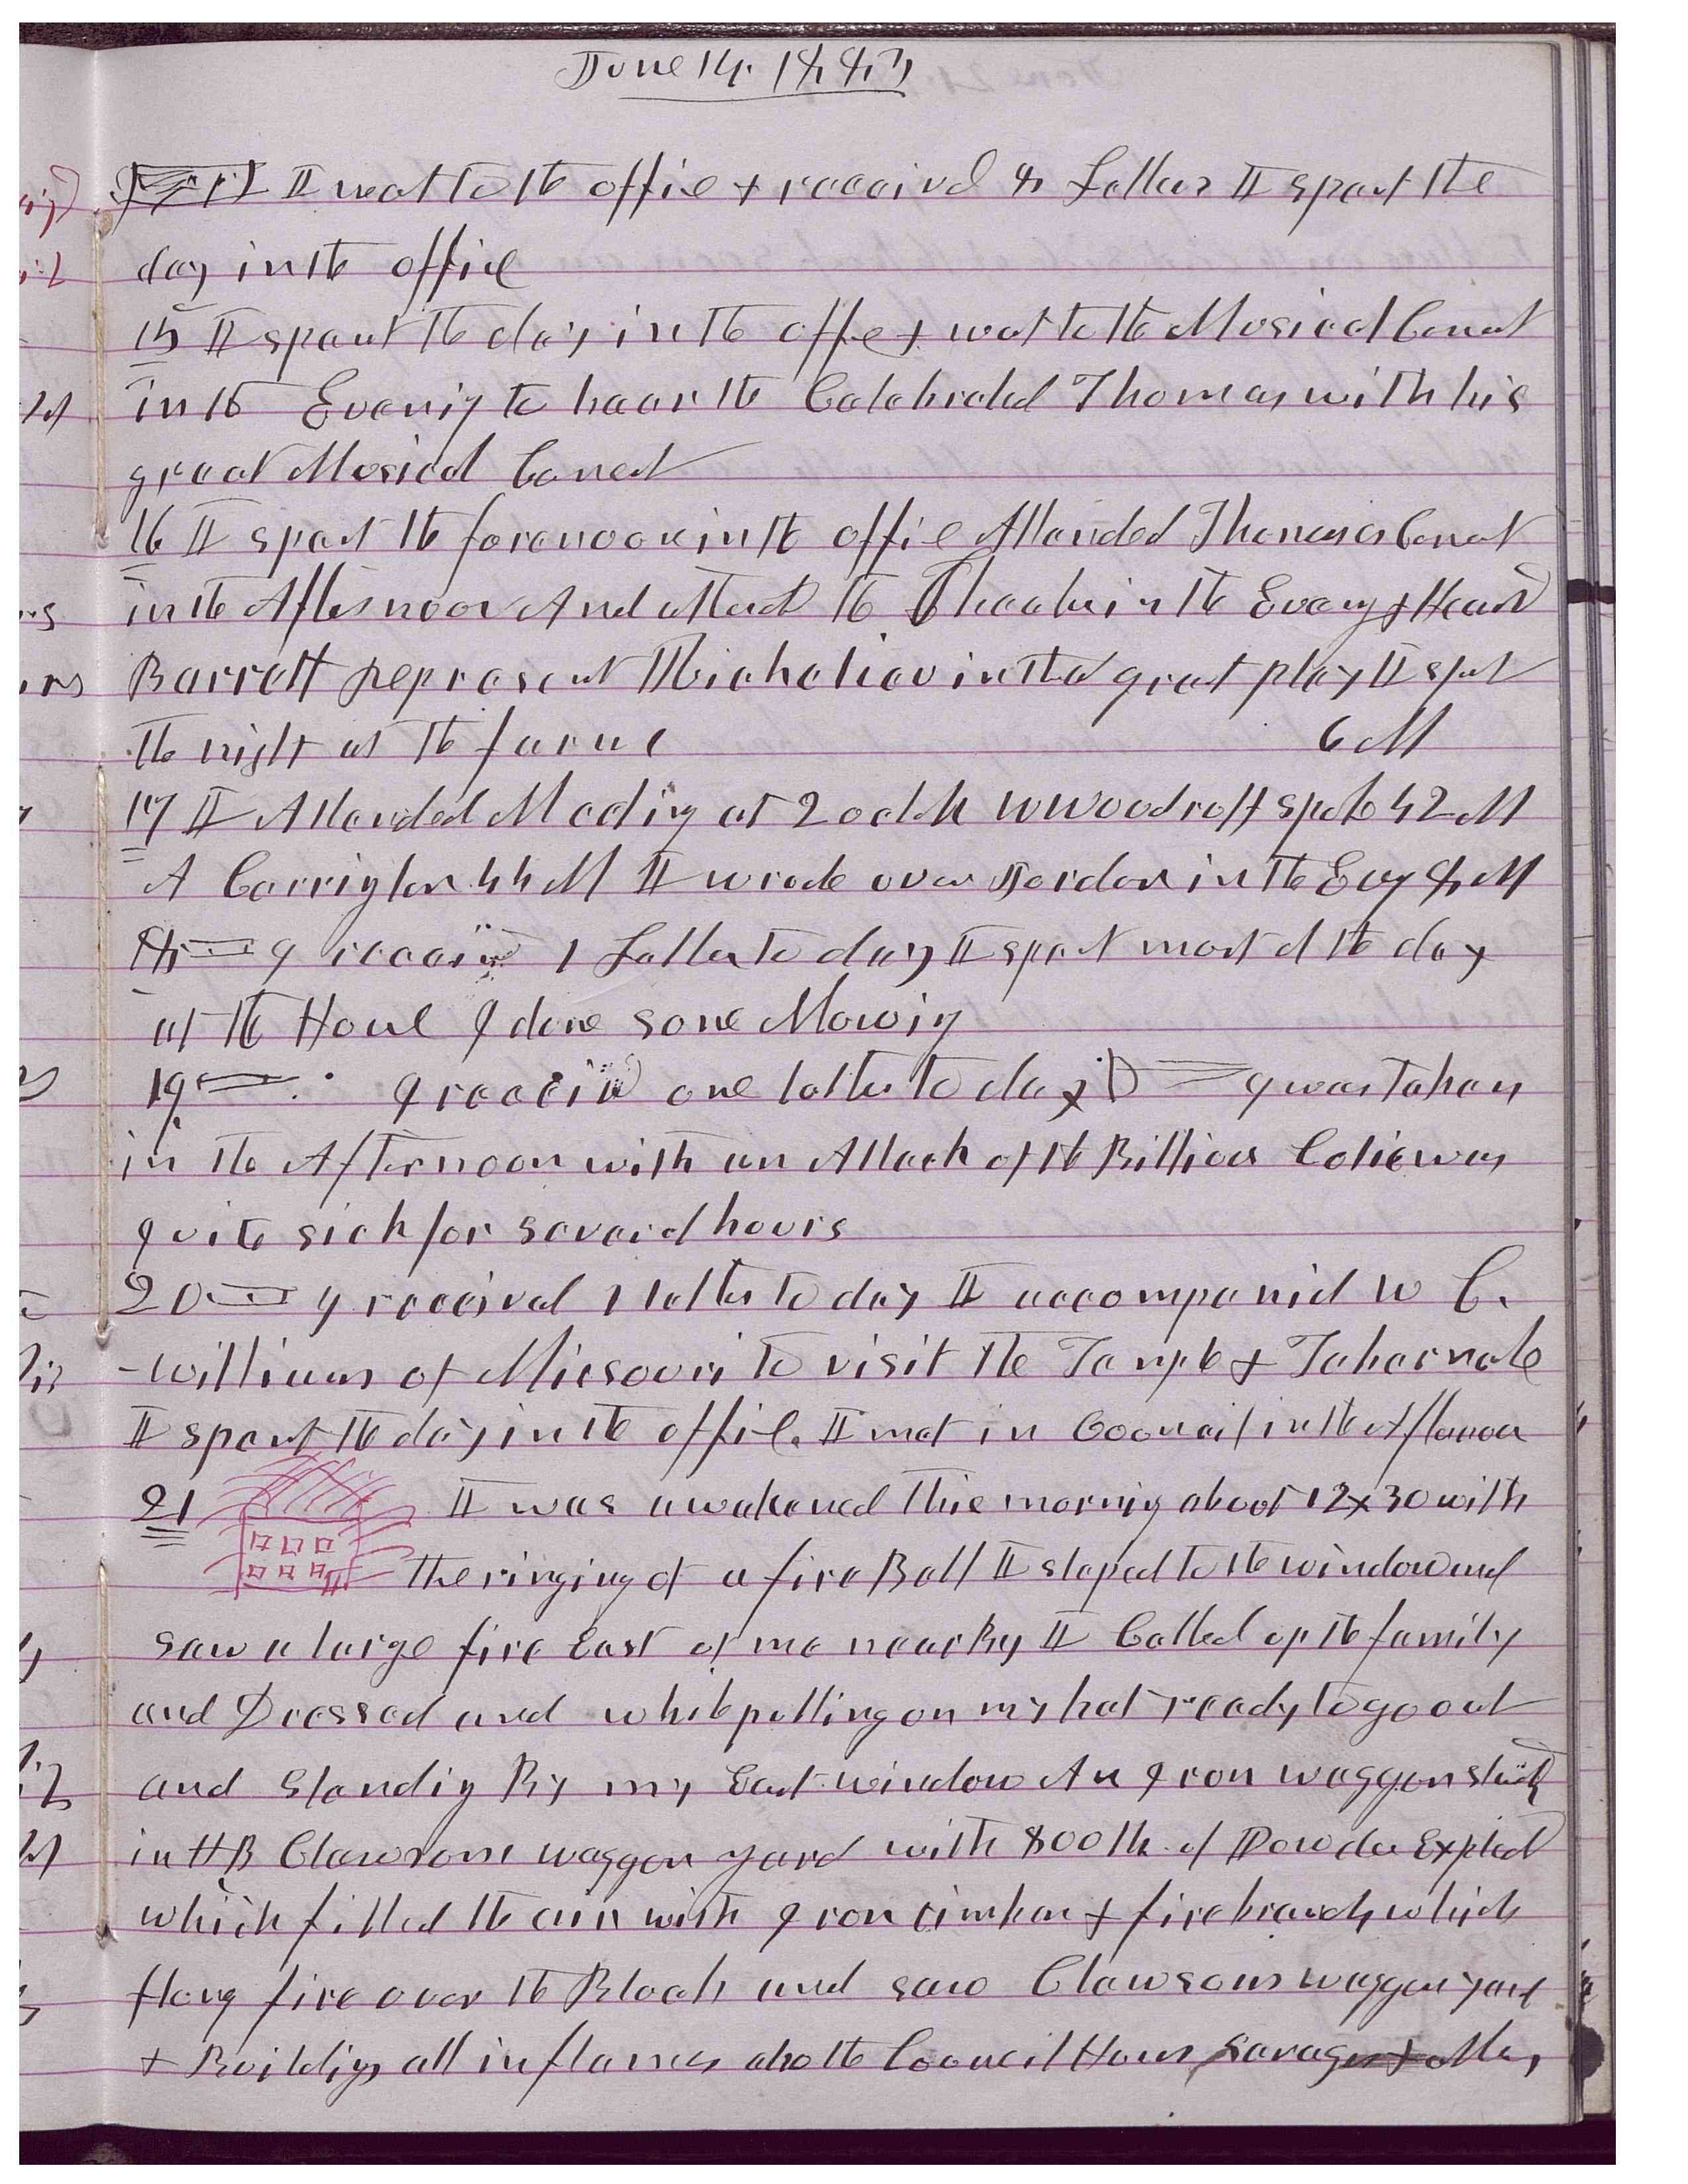 June 14. 1883
I went to the office & received 8 Letters I spent the
day in the office
15 I spent the day in the office & wet to the Musical Concert
in the Evenig to hear the Celebrated Thomas with his
great Musical Concert
16 I spent the forenoon in the office Attended Thomases Concert
in the Afternoon And attend the Theater in the Eveng & Heard
Barrett Represent Richeliev in that great play I spent
the night at the farm 6 M
17 I Attended Meeting at 2 oclok W Woodruff spoke 42 M
A Carrington 44 M I wrode over Jordon in the Eveg 8 M
18 I receivd 1 Letter to day I spent most of the day
at the House I done some Mowing
19 I receivd one letter to day I was Taken
in the Afternoon with an Attack of the Billious Colic was
quite sick for severel hours
20 I received 1 letter to day I accompanied W C.
Williams of Missouri to visit the Temple & Tabernacle
I spent the day in the office. I met in Councel in the Afternoon
21 I was awakened this morning about 12x30 with
the ringing of a fire Bell I steped to the window and
saw a large fire East of me near By I Called up the family
and Dressed and while putting on my hat ready to go out
and Standing By my East window An Iron waggon shed
in H B Clawsons waggon yard with 800 lb of Powder Exploded
which filled the air with Iron timber & firebrands which
flung fire over the Block and saw Clawsons waggon yard
& Buildigs all in flames also the Council House Savages